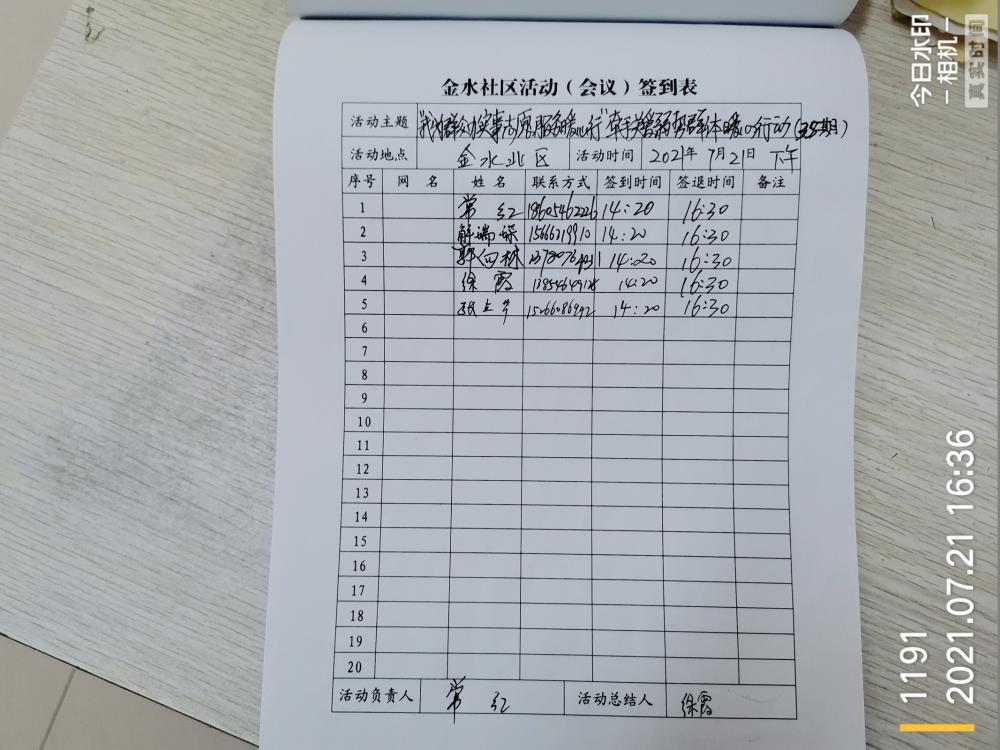 金水社区活动（会议）签到表
活动主题 "我为群众办实事志愿服务暖心行"牵手关爱弱势群体暖心行动（35期）
活动地点 金水北区 活动时间 2021年7月21日 下午
序号 网 名 姓 名 联系方式 签到时间 签退时间 备注
1 常 红 18605462226 14:20 16:30
2 解瑞 15666219910 14:20 16:30
3 郭向 14:20 16:30
4 徐霞 14:20 16:30
5 张 15266086992 14:20 16:30
6
7
8
9
10
11
12
13
14
15
16
17
18
19
20
活动负责人 常 红 活动总结人 徐霞
今日水印
相机
真实时间
1191
2021.07.21 16:36